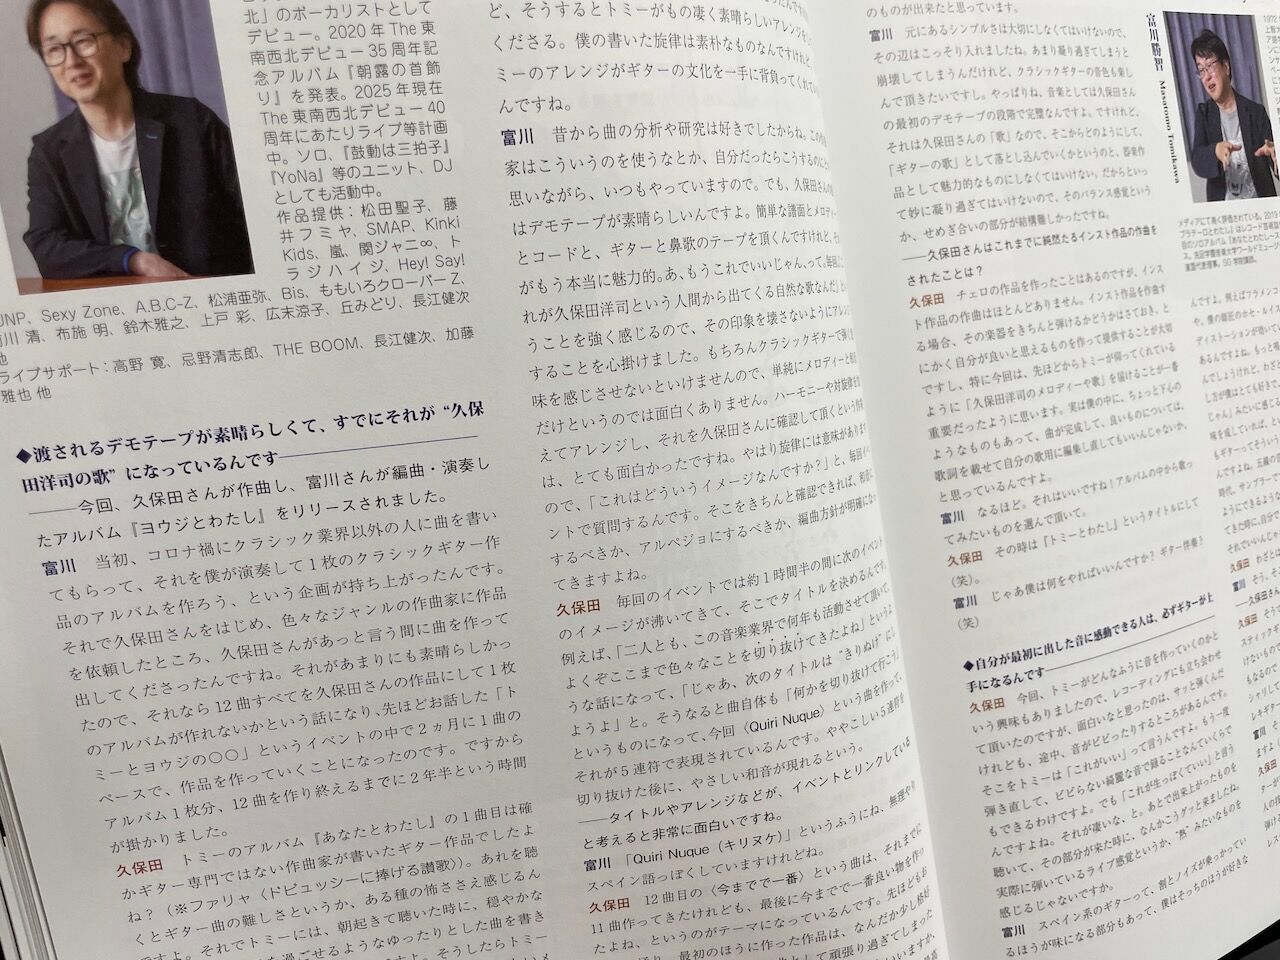 北」のボーカリストとして
デビュー。2020年The東
南西北デビュー35周年記
念アルバム『朝露の首飾
り』を発表。2025年現在
The東南西北デビュー40
周年にあたりライブ等計画
中。ソロ、『鼓動は三拍子』
『YoNa』等のユニット、DJ
としても活動中。
作品提供：松田聖子、藤
井フミヤ、SMAP、Kinki
Kids、嵐、関ジャニ∞、ト
ラジハイジ、Hey! Say!
JUNP、Sexy Zone、A.B.C-Z、松浦亜弥、Bis、ももいろクローバーZ、
川 清、布施 明、鈴木雅之、上戸 彩、広末涼子、丘みどり、長江健次
他
ライブサポート：高野 寛、忌野清志郎、THE BOOM、長江健次、加藤
雅也 他
◆渡されるデモテープが素晴らしくて、すでにそれが“久保
田洋司の歌”になっているんです
――今回、久保田さんが作曲し、富川さんが編曲・演奏し
たアルバム『ヨウジとわたし』をリリースされました。
富川　当初、コロナ禍にクラシック業界以外の人に曲を書い
てもらって、それを僕が演奏して1枚のクラシックギター作
品のアルバムを作ろう、という企画が持ち上がったんです。
それで久保田さんをはじめ、色々なジャンルの作曲家に作品
を依頼したところ、久保田さんがあっと言う間に曲を作って
出してくださったんですね。それがあまりにも素晴らしかっ
たので、それなら12曲すべてを久保田さんの作品にして1枚
のアルバムが作れないかという話になり、先ほどお話した「ト
ミーとヨウジの〇〇」というイベントの中で2ヵ月に1曲の
ペースで、作品を作っていくことになったのです。ですから
アルバム1枚分、12曲を作り終えるまでに2年半という時間
が掛かりました。
久保田　トミーのアルバム『あなたとわたし』の1曲目は確
かギター専門ではない作曲家が書いたギター作品でしたよ
ね？（※ファリャ〈ドビュッシーに捧げる讃歌〉）。あれを聴
くとギター曲の難しさというか、ある種の怖ささえ感じるん
ですよ。それでトミーには、朝起きて聴いた時に、穏やかな
を過ごせるようなゆったりとした曲を書き
ど、そうするとトミーがもの凄く素晴らしいアレンジを
くださる。僕の書いた旋律は素朴なものなんですけれど、
ミーのアレンジがギターの文化を一手に背負ってくれて
んですね。
富川　昔から曲の分析や研究は好きでしたからね。この
家はこういうのを使うなとか、自分だったらこうするのに
思いながら、いつもやっていますので。でも、久保田さんの
はデモテープが素晴らしいんですよ。簡単な譜面とメロディー
とコードと、ギターと鼻歌のテープを頂くんですけれど、そ
がもう本当に魅力的。あ、もうこれでいいじゃん、って。毎回、
れが久保田洋司という人間から出てくる自然な歌なんだと
うことを強く感じるので、その印象を壊さないようにアレン
することを心掛けました。もちろんクラシックギターで弾く
味を感じさせないといけませんので、単純にメロディーと
だけというのでは面白くありません。ハーモニーや対旋律を
えてアレンジし、それを久保田さんに確認して頂くという作
は、とても面白かったですね。やはり旋律には意味があります
ので、「これはどういうイメージなんですか？」と、毎回イベ
ントで質問するんです。そこをきちんと確認できれば、和音に
するべきか、アルペジョにするべきか、編曲方針が明確になっ
てきますよね。
久保田　毎回のイベントでは約1時間半の間に次のイベント
のイメージが沸いてきて、そこでタイトルを決めるんです。
例えば、「二人とも、この音楽業界で何年も活動させて頂いて、
よくぞここまで色々なことを切り抜けてきたよね」というよ
うな話になって、「じゃあ、次のタイトルは“きりぬけ”にし
ようよ」と。そうなると曲自体も「何かを切り抜けて行こう」
というものになって、今回〈Quiri Nuque〉という曲を作って、
それが5連符で表現されているんです。ややこしい5連符を
切り抜けた後に、やさしい和音が現れるという。
――タイトルやアレンジなどが、イベントとリンクしている
と考えると非常に面白いですね。
富川　「Quiri Nuque（キリヌケ）」というふうにね、無理やり
スペイン語っぽくしていますけれどね。
久保田　12曲目の〈今までで一番〉という曲は、それまでに
11曲作ってきたけれども、最後に今までで一番良い物を作っ
たよね、というのがテーマになっているんです。先ほどお
り、最初のほうに作った作品は、なんだか少し格好
として頑張り過ぎてしまった
のものが出来たと思っています。
富川　元にあるシンプルさは大切にしなくてはいけないので、
その辺はこっそり入れましたね。あまり凝り過ぎてしまうと
崩壊してしまうんだけれど、クラシックギターの音色も楽し
んで頂きたいですし。やっぱりね、音楽としては久保田さん
の最初のデモテープの段階で完璧なんですよ。ですけれど、
それは久保田さんの「歌」なので、そこからどのようにして、
「ギターの歌」として落とし込んでいくかというのと、器楽作
品として魅力的なものにしなくてはいけない。だからといっ
て妙に凝り過ぎてはいけないので、そのバランス感覚という
か、せめぎ合いの部分が結構難しかったですね。
――久保田さんはこれまでに純然たるインスト作品の作曲を
されたことは？
久保田　チェロの作品を作ったことはあるのですが、インス
ト作品の作曲はほとんどありません。インスト作品を作曲す
る場合、その楽器をきちんと弾けるかどうかはさておき、と
にかく自分が良いと思えるものを作って提供することが大切
ですし、特に今回は、先ほどからトミーが仰ってくれている
ように「久保田洋司のメロディーや歌」を届けることが一番
重要だったように思います。実は僕の中に、ちょっと下心の
ようなものもあって、曲が完成して、良いものについては、
歌詞を載せて自分の歌用に編集し直してもいいんじゃないか、
と思っているんですよ。
富川　なるほど。それはいいですね！アルバムの中から歌っ
てみたいものを選んで頂いて。
久保田　その時は『トミーとわたし』というタイトルにして
（笑）。
富川　じゃあ僕は何をやればいいんですか？ ギター伴奏？
（笑）
◆自分が最初に出した音に感動できる人は、必ずギターが上
手になるんです
久保田　今回、トミーがどんなふうに音を作っていくのかと
いう興味もありましたので、レコーディングにも立ち会わせ
て頂いたのですが、面白いなと思ったのは、サッと弾くんだ
けれども、途中、音がビビったりするところがあるんです。
そこをトミーは「これがいい」って言うんですよ。もう一度
弾き直して、ビビらない綺麗な音で録ることなんていくらで
もできるわけですよ。でも「これが生っぽくていい」と言う
んですよね。それが凄いな、と。あとで出来上がったものを
聴いて、その部分が来た時に、なんかこうグッと来ましたね。
実際に弾いているライブ感覚というか、“熱”みたいなものを
感じるじゃないですか。
富川　スペイン系のギターって、割とノイズが乗っかってい
るほうが味になる部分もあって、僕はそっちのほうが好きな
富川勝智 Masatomo Tomikawa